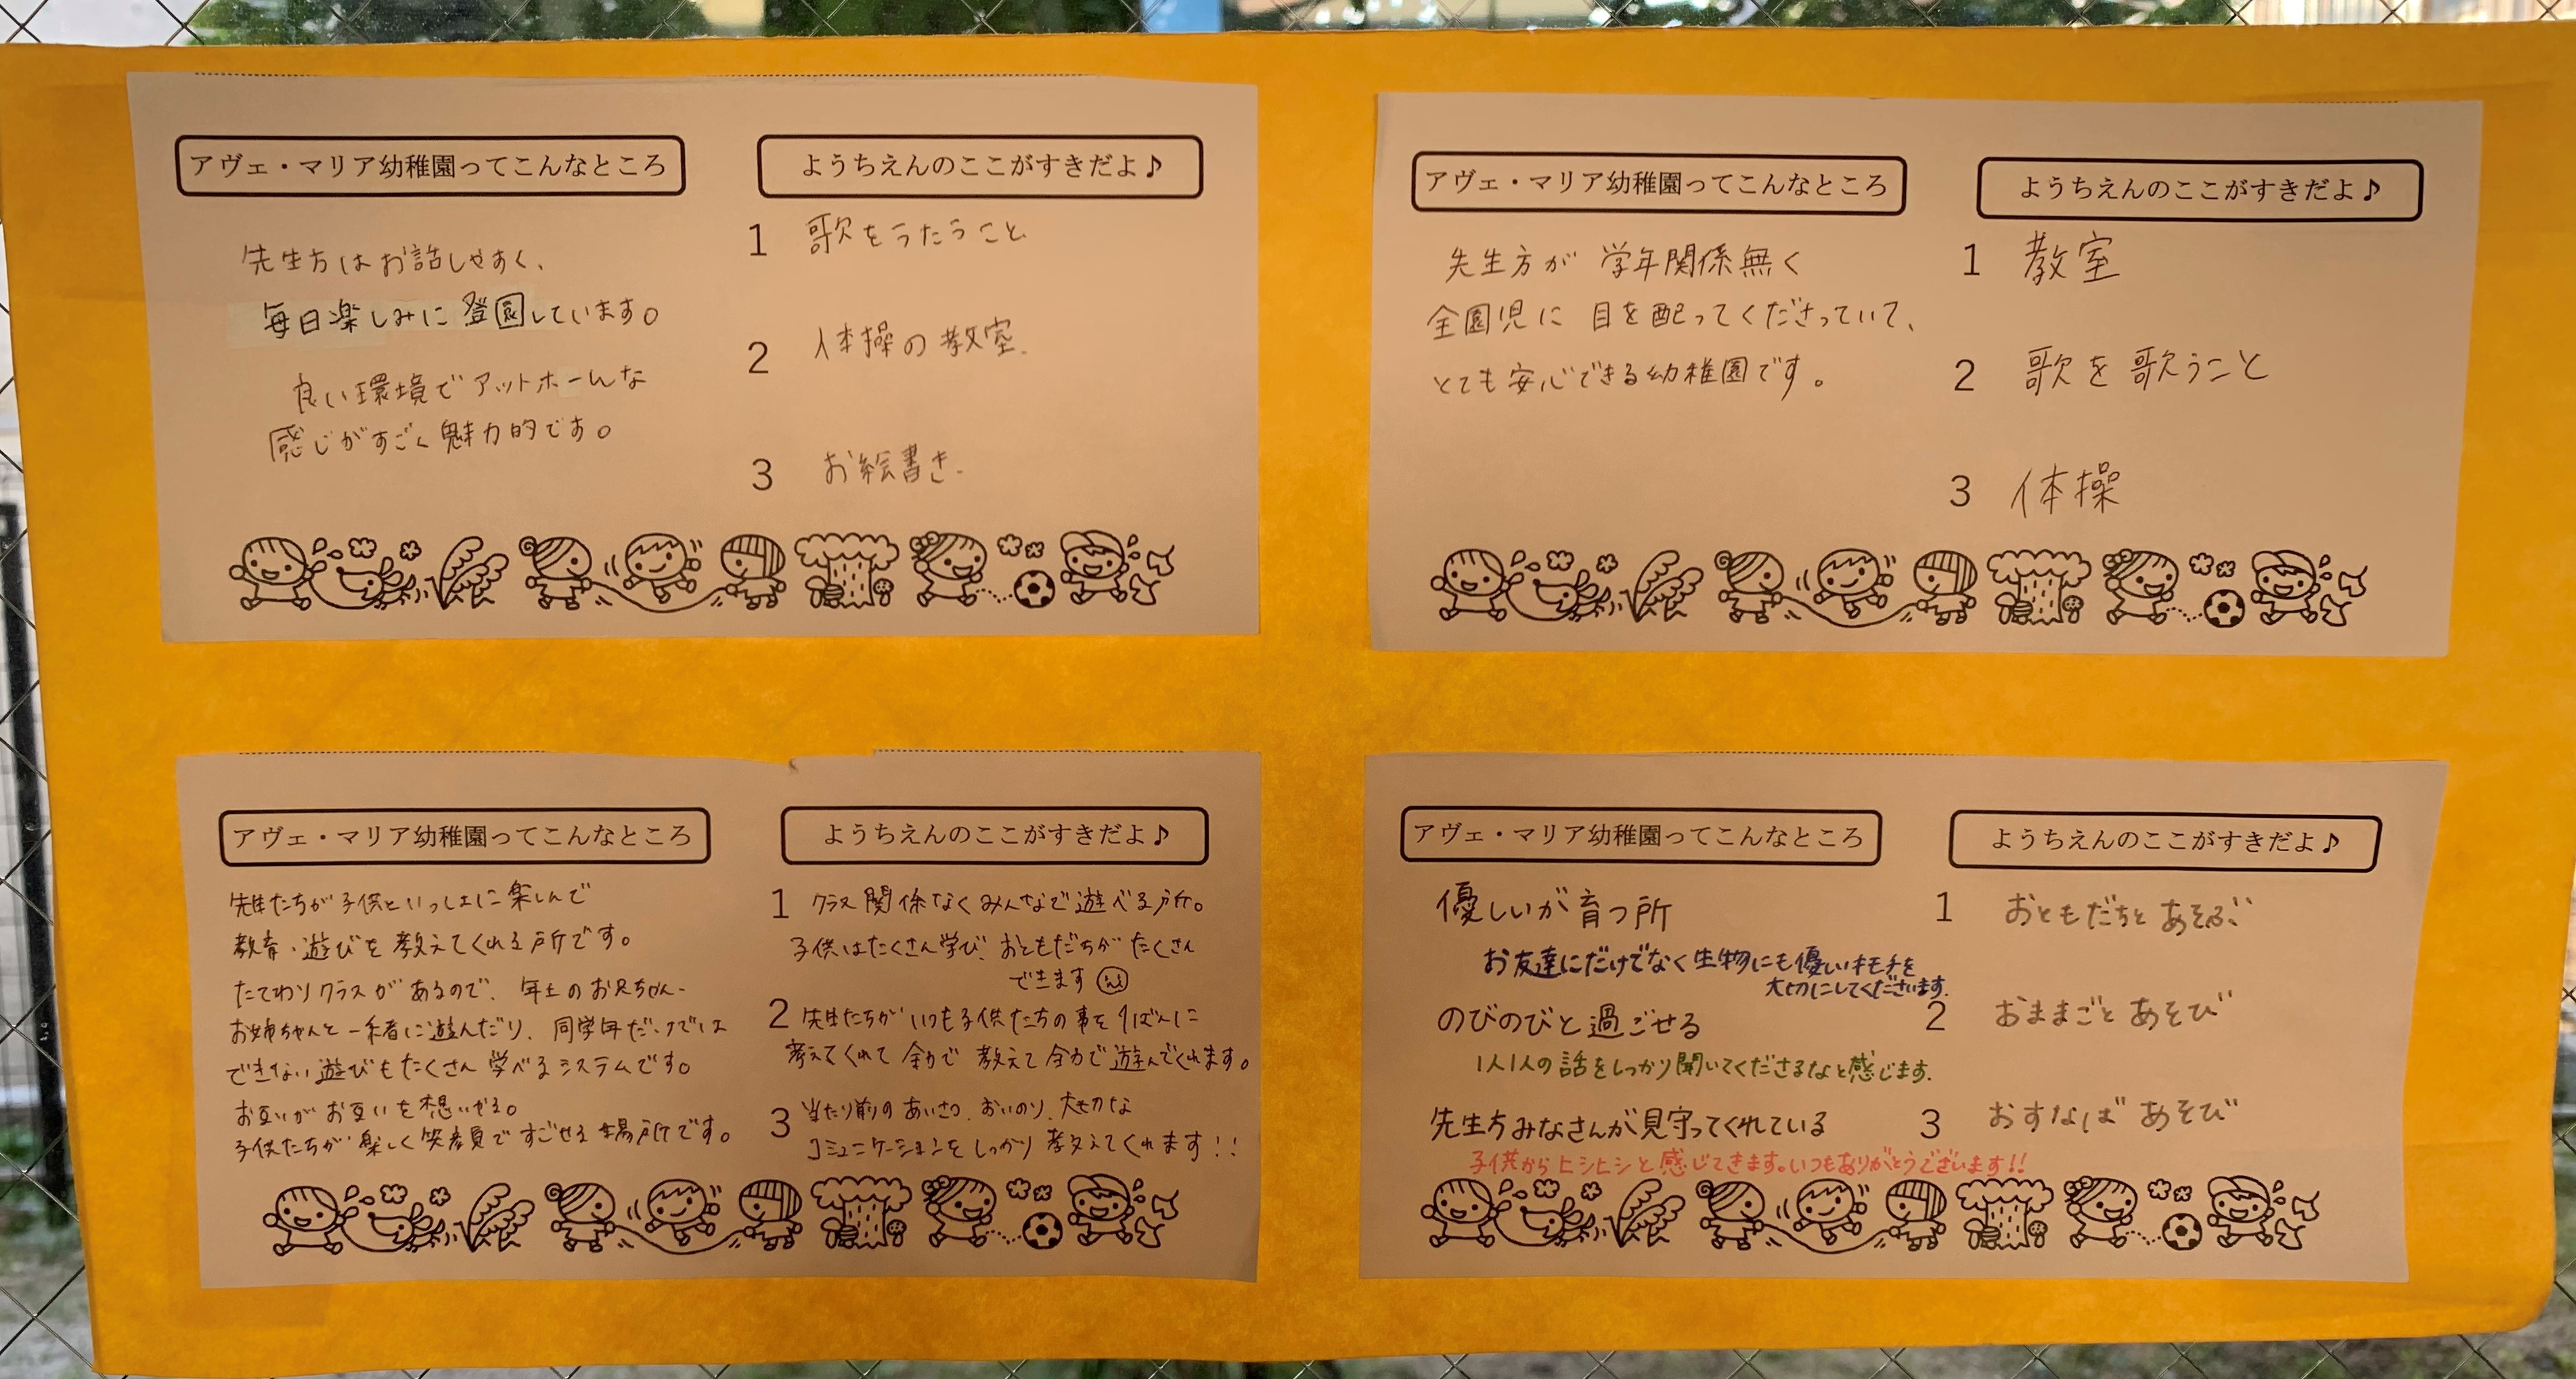 アヴェ・マリア幼稚園ってこんなところ
先生方はお話しやすく、
毎日楽しみに登園しています。
良い環境でアットホームな
感じがすごく魅力的です。
ようちえんのここがすきだよ♪
1 歌をうたうこと
2 体操の教室.
3 お絵書き.
アヴェ・マリア幼稚園ってこんなところ
先生方が 学年関係無く
全園児に 目を配ってくださっていて、
とても安心できる幼稚園です。
ようちえんのここがすきだよ♪
1 教室
2 歌を歌うこと
3 体操
アヴェ・マリア幼稚園ってこんなところ
先生たちが子供といっしょに楽しんで
教育・遊びを教えてくれる所です。
たてわりクラスがあるので、年上のお兄ちゃん・
お姉ちゃんと一緒に遊んだり、同学年だけでは
できない遊びもたくさん学べるシステムです。
お互いがお互いを想いやる。
子供たちが楽しく笑顔ですごせる場所です。
ようちえんのここがすきだよ♪
1 クラス関係なくみんなで遊べる所。
子供はたくさん学び、おともだちがたくさん
できます
2 先生たちがいつも子供たちの事を1ばんに
考えてくれて全力で教えて全力で遊んでくれます。
3 当たり前のあいさつ、おいのり、大切な
コミュニケーションをしっかり教えてくれます!!
アヴェ・マリア幼稚園ってこんなところ
優しいが育つ所
お友達にだけでなく生物にも優しいキモチを
大切にしてくださいます.
のびのびと過ごせる
1人1人の話をしっかり聞いてくださるなと感じます.
先生方みなさんが見守ってくれている
子供からヒシヒシと感じてきます。いつもありがとうございます!!
ようちえんのここがすきだよ♪
1 おともだちとあそぶ
2 おままごとあそび
3 おすなばあそび